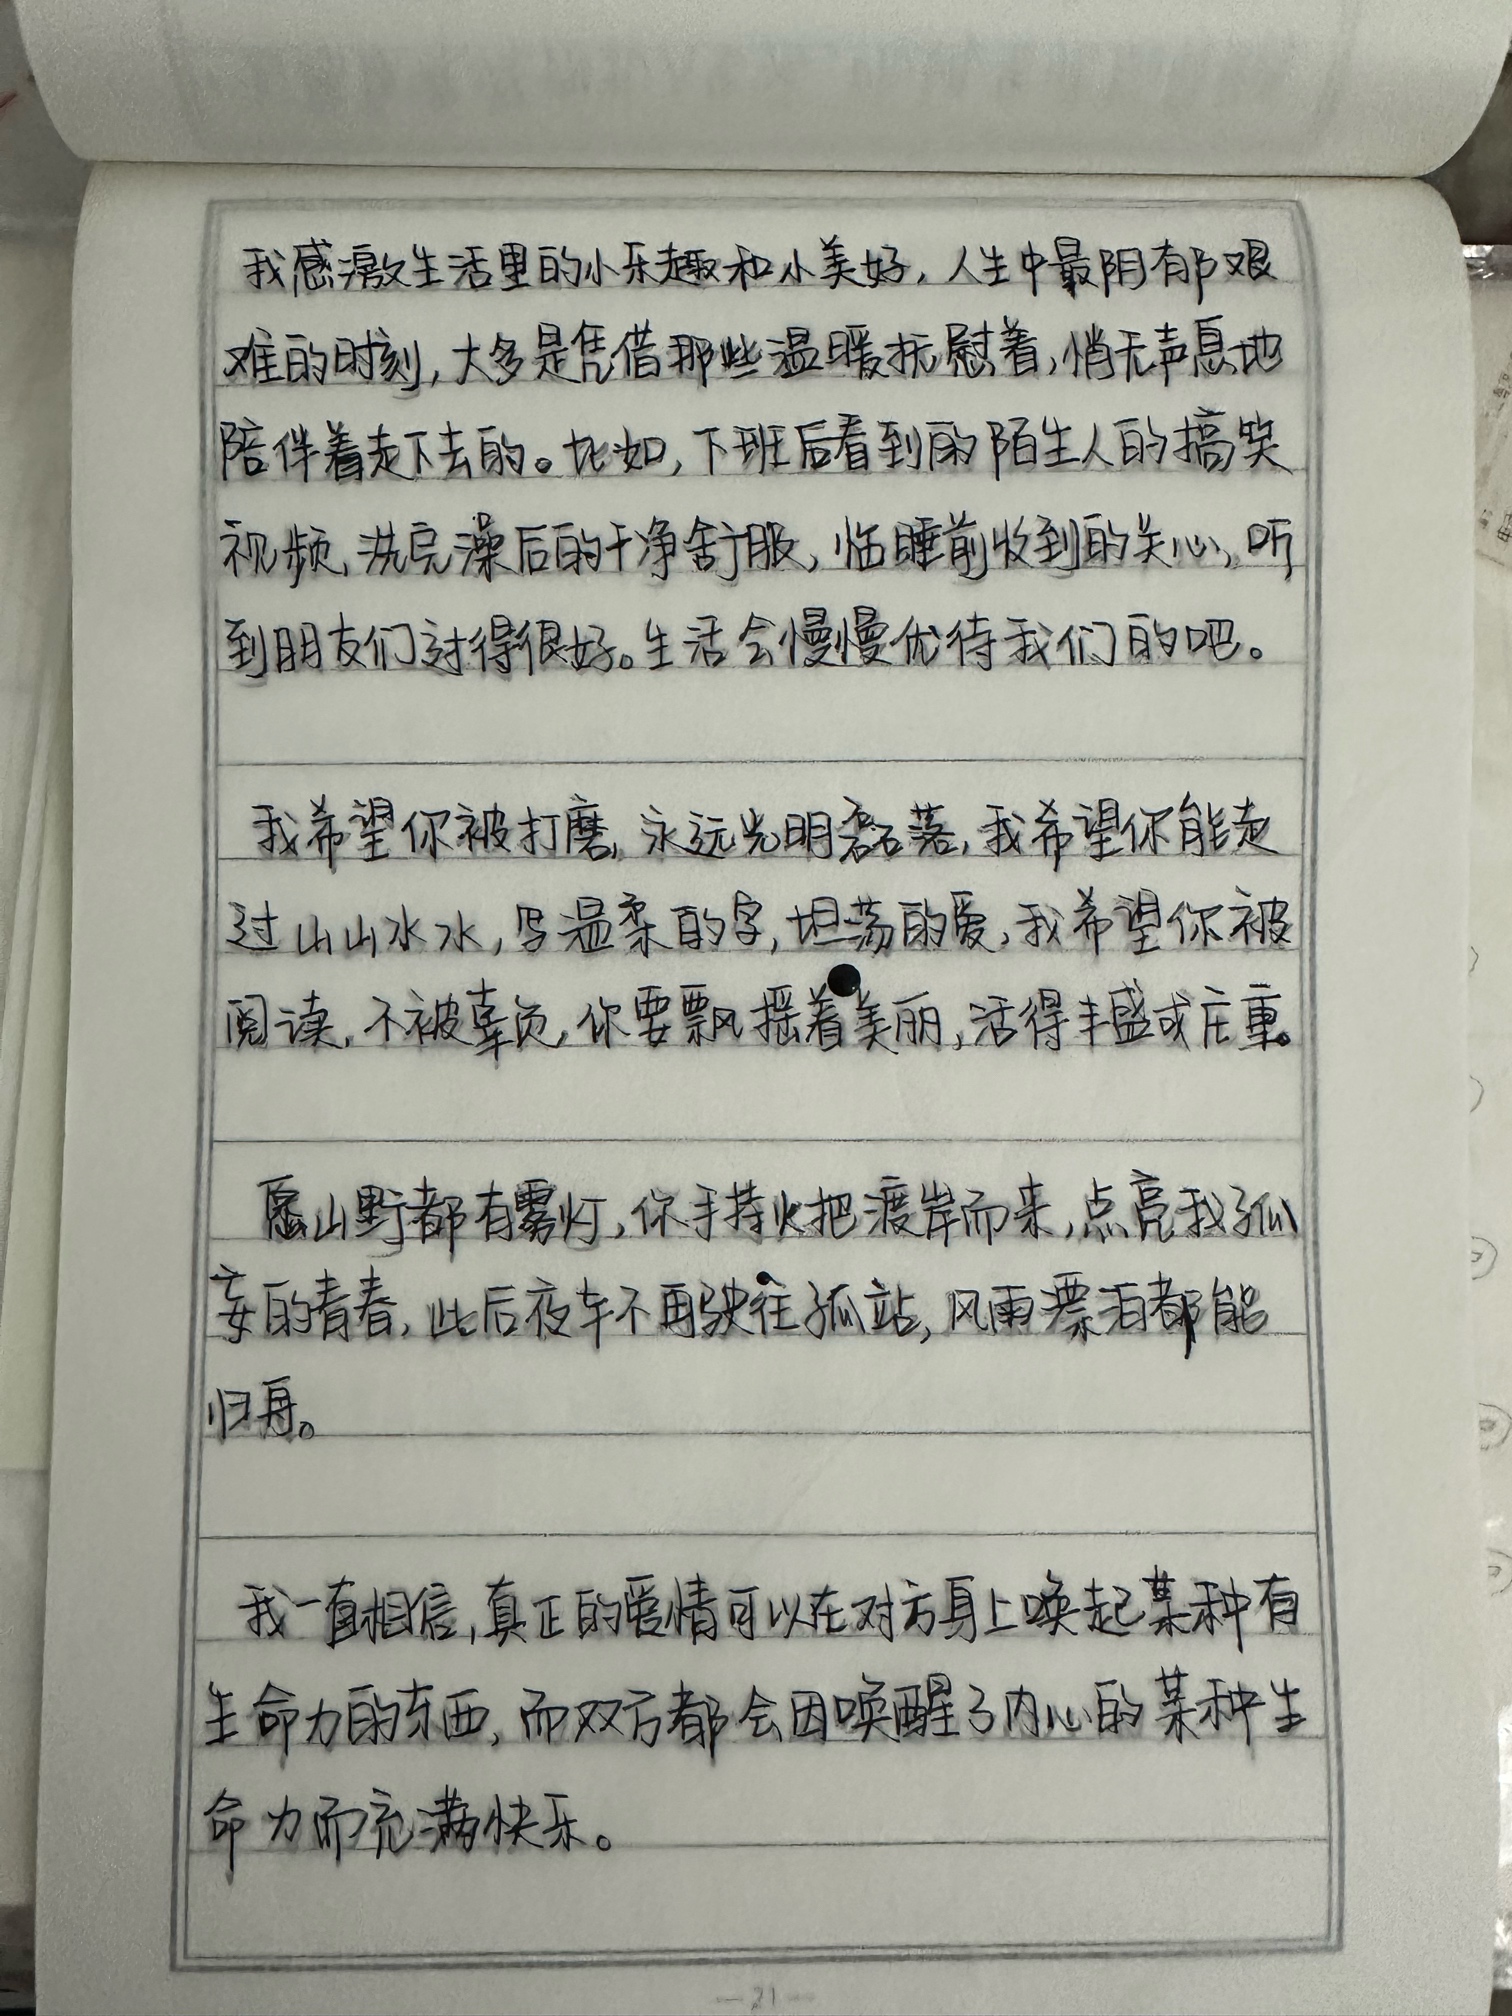 我感激生活里的小乐趣和小美好，人生中最阴郁艰
难的时刻，大多是凭借那些温暖抚慰着，悄无声息地
陪伴着走下去的。比如，下班后看到的陌生人的搞笑
视频，洗完澡后的干净舒服，临睡前收到的关心，听
到朋友们过得很好。生活会慢慢优待我们的吧。
我希望你被打磨，永远光明磊落，我希望你能走
过山山水水，写温柔的字，坦荡的爱，我希望你被
阅读，不被辜负，你要飘摇着美丽，活得丰盛或庄重。
愿山野都有雾灯，你手持火把渡岸而来，点亮我孤
妄的青春，此后夜车不再驶往孤站，风雨漂泊都能
归舟。
我一直相信，真正的爱情可以在对方身上唤起某种有
生命力的东西，而双方都会因唤醒了内心的某种生
命力而充满快乐。
— 21 —